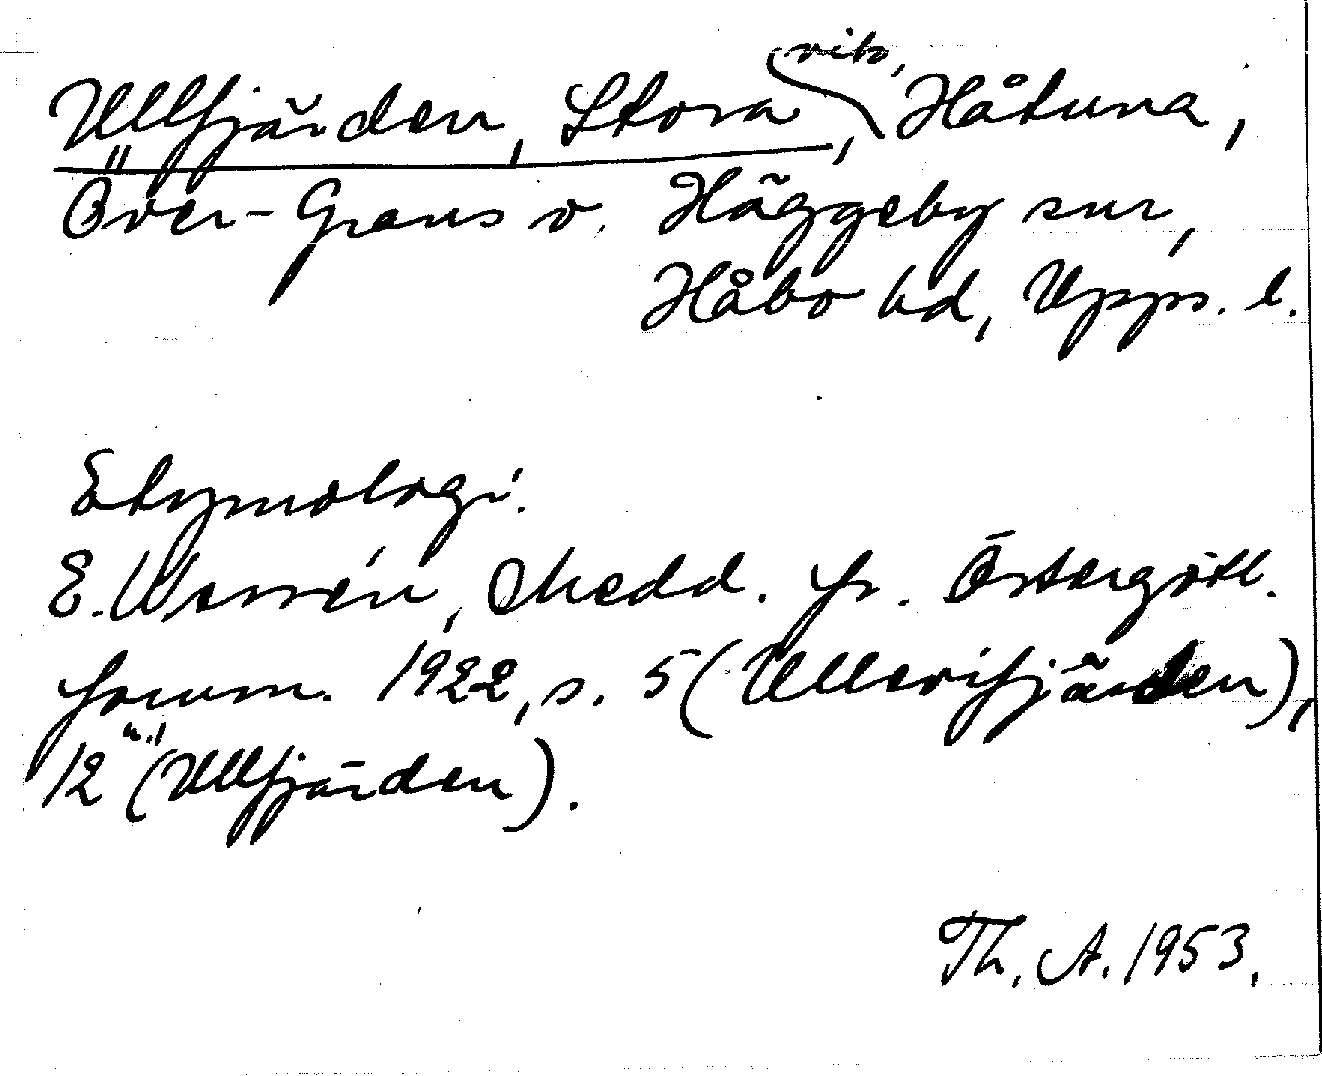 Ullfjärden, Stora, vik, Håtuna,
Över-Grans o. Häggeby snr,
Håbo hd, Upps. l.
Etymologi.
E. Wessén, Medd. fr. Östergötl.
fornm. 1922, s. 5 (Ullerisfjärden),
12 (Ullfjärden).
Th. A. 1953.